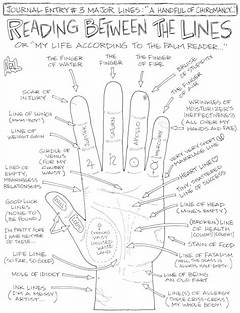 JOURNAL ENTRY #3 MAJOR LINES: "A HANDFUL OF CHIROMANCY..."
READING BETWEEN THE LINES
OR "MY LIFE ACCORDING TO THE PALM READER..."
THE FINGER
OF WATER
THE
FINGER
THE FINGER
OF FIRE
SCAR OF
INJURY
LINE OF
WEIGHT GAIN
GIRDLE OF
VENUS
(FOR MY
CHUBBY
WAIST)
LINE OF
EMPTY,
MEANINGLESS
RELATIONSHIPS
GOOD LUCK
LINES
(NONE TO)
(BE FOUND)
I'M PRETTY SURE
I HAVE NEITHER
OF THESE...
LIFE LINE
(SO FAR, SO GOOD)
MOLE OF IDIOCY
INK LINES
(I'M A MESSY)
ARTIST...
SATURN
APOLLO
WRINKLES OF
MOISTURIZER'S
INEFFECTIVENESS
(ALL OVER MY
HANDS AND FACE)
VERY, VERY SHORT
MARRIAGE LINE
HEART LINE
LINE OF SUCCESS
LINE OF HEAD
(MINE'S EMPTY)
(BROKEN) LINE
OF HEALTH
(COUGH! COUGH!)
STAIN OF FOOD
LINE OF FATALISM
LINE OF BEING
AN OLD FART
LINE(S) OF ALLERGY
(THESE CRISS-CROSS)
MY WHOLE BODY!